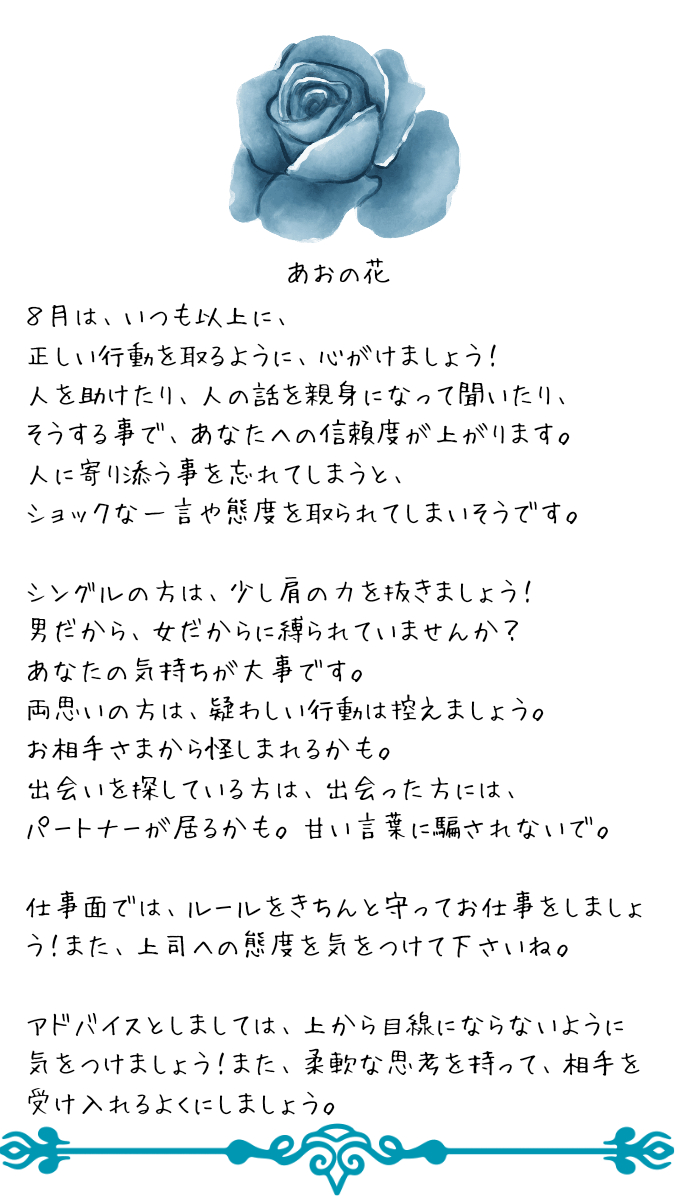 あおの花
8月は、いつも以上に、
正しい行動を取るように、心がけましょう!
人を助けたり、人の話を親身になって聞いたり、
そうする事で、あなたへの信頼度が上がります。
人に寄り添う事を忘れてしまうと、
ショックな一言や態度を取られてしまいそうです。
シングルの方は、少し肩の力を抜きましょう!
男だから、女だからに縛られていませんか?
あなたの気持ちが大事です。
両思いの方は、疑わしい行動は控えましょう。
お相手さまから怪しまれるかも。
出会いを探している方は、出会った方には、
パートナーが居るかも。甘い言葉に騙されないで。
仕事面では、ルールをきちんと守ってお仕事をしましょ
う!また、上司への態度を気をつけて下さいね。
アドバイスとしましては、上から目線にならないように
気をつけましょう!また、柔軟な思考を持って、相手を
受け入れるよくにしましょう。